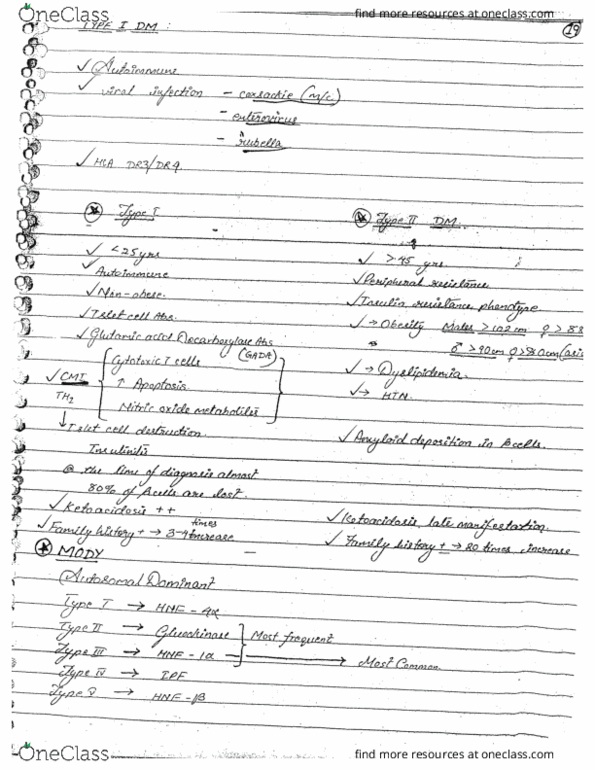 OneClass
find more resources at oneclass.com
TYPE I DM :
19
✓ Autoimmune
✓ viral infection - coxsackie (m/c)
- enterovirus
- rubella
✓ HLA DR3/DR4
Type I
Type II DM.
✓ <25 yrs
✓ >45 yrs
✓ Autoimmune
✓ Peripheral resistance
✓ Non-obese.
✓ Insulin resistance phenotype
✓ Islet cell Abs.
✓ → Obesity Males > 102 cm ♀ > 88
✓ Glutamic acid Decarboxylase Abs
(GADA)
♂ > 90cm ♀ > 80cm (asia
Cytotoxic T cells
✓ → Dyslipidemia.
✓ CMI
↑ Apoptosis
✓ → HTN.
TH1
Nitric oxide metabolites
↓ Islet cell destruction.
✓ Amyloid deposition in β cells.
Insulinitis
@ the time of diagnosis almost
80% of β cells are lost.
✓ Ketoacidosis ++
✓ Ketoacidosis late manifestation.
✓ Family history + → 3-4 times increase
✓ Family history + → 20 times increase
MODY
Autosomal Dominant
Type I → HNF - 4α
Type II → Glucokinase
Most frequent
Type III → HNF - 1α
→ Most Common
Type IV → IPF
Type V → HNF - 1β
OneClass
find more resources at oneclass.com